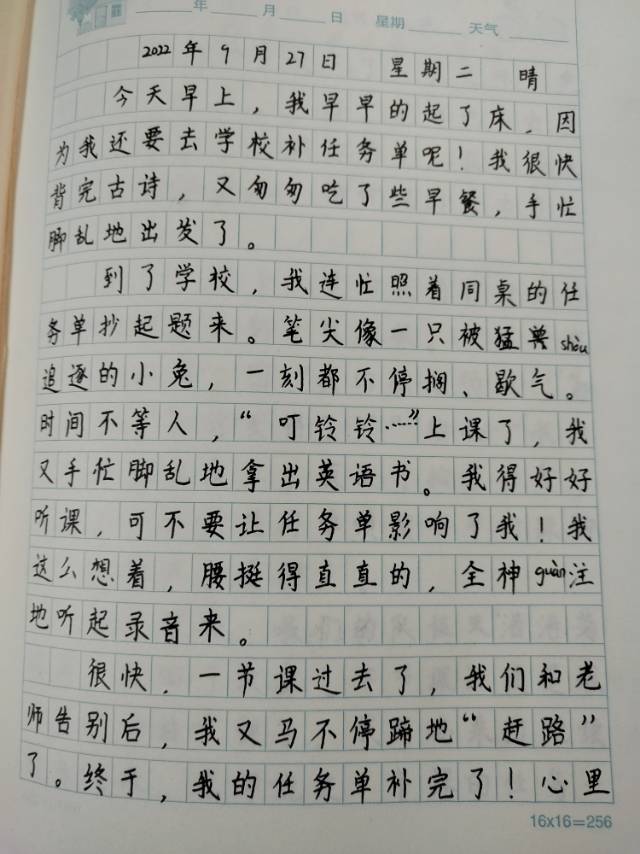 年 月 日 星期 天气
2022年9月27日 星期二 晴
今天早上，我早早的起了床，因
为我还要去学校补任务单呢！我很快
背完古诗，又匆匆吃了些早餐，手忙
脚乱地出发了。
到了学校，我连忙照着同桌的任
务单抄起题来。笔尖像一只被猛兽shòu
追逐的小兔，一刻都不停搁、歇气。
时间不等人，“叮铃铃……”上课了，我
又手忙脚乱地拿出英语书。我得好好
听课，可不要让任务单影响了我！我
这么想着，腰挺得直直的，全神guàn注
地听起录音来。
很快，一节课过去了，我们和老
师告别后，我又马不停蹄地“赶路”
了。终于，我的任务单补完了！心里
16x16=256